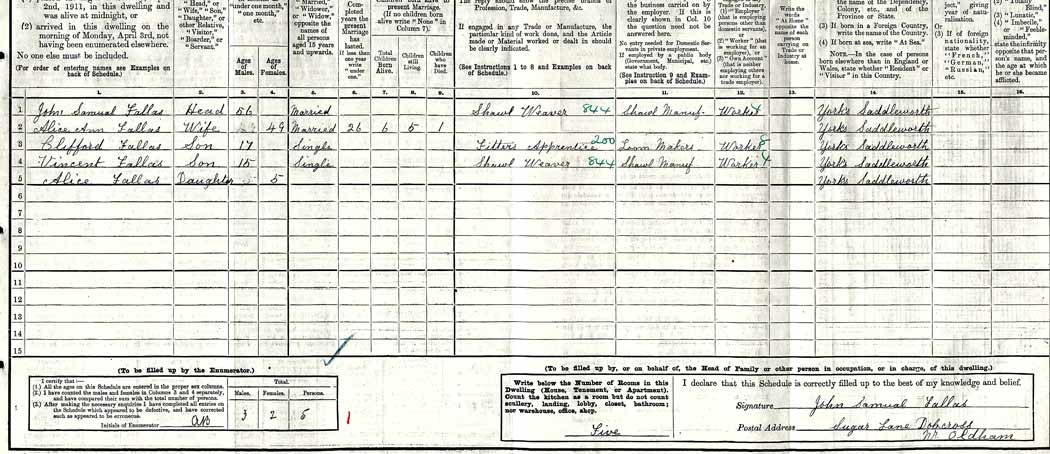 2nd, 1911, in this dwelling and
was alive at midnight, or
(2) arrived in this dwelling on the
morning of Monday, April 3rd, not
having been enumerated elsewhere.
No one else must be included.
(For order of entering names see Examples on
back of Schedule.)
"Head," or
"Wife," "Son,"
"Daughter," or
other Relative,
"Visitor,"
"Boarder," or
"Servant."
under one month,"
"one month,"
etc.
Ages
of
Males.
Ages
of
Females.
"Married,"
"Widower,"
or "Widow,"
opposite the
names of
all persons
aged 15 years
and upwards.
Completed
years the
present
Marriage
has
lasted.
If less than
one year
write
"under
one."
present Marriage.
(If no children born
alive write "None" in
Column 7).
Total
Children
Born
Alive.
Children
still
Living.
Children
who
have
Died.
The reply should show the precise branch of
Profession, Trade, Manufacture, &c.
If engaged in any Trade or Manufacture, the
particular kind of work done, and the Article
made or Material worked or dealt in should
be clearly indicated.
(See Instructions 1 to 8 and Examples on back
of Schedule.)
the business carried on by
the employer. If this is
clearly shown in Col. 10
the question need not be
answered here.
No entry needed for Domestic Servants
in private employment.
If employed by a public body
(Government, Municipal, etc.)
state what body.
(See Instruction 9 and Examples
on back of
Schedule.)
Trade or Industry,
(1) "Employer"
(that is employing
persons other than
domestic servants),
or
(2) "Worker" (that
is working for an
employer), or
(3) "Own Account"
(that is neither
employing others
nor working for a
trade employer).
Write
the words
"At Home"
opposite the
name of each
person
carrying on
Trade or
Industry at
home.
the name of the Dependency,
Colony, etc., and of the
Province or State.
(3) If born in a Foreign Country,
write the name of the Country.
(4) If born at sea, write "At Sea."
NOTE.—In the case of persons
born elsewhere than in England or
Wales, state whether "Resident" or
"Visitor" in this Country.
ject," giving
year of naturalisation.
Or
(3) If of foreign
nationality,
state whether
"French,"
"German,"
"Russian,"
etc.
"Lunatic,"
(4) "Imbecile,"
or "Feeble-minded,"
state the infirmity
opposite that person's
name, and
the age at which
he or she became
afflicted.
1. 2. 3. 4. 5. 6. 7. 8. 9. 10. 11. 12. 13. 14. 15. 16.
1 John Samual Fallas Head 56 Married Shawl Weaver 844 Shawl Manuf. Worker Yorks Saddleworth
2 Alice Ann Fallas Wife 49 Married 26 6 5 1 Yorks Saddleworth
3 Clifford Fallas Son 17 Single Fitters Apprentice 200 Loom Makers Worker Yorks Saddleworth
4 Vincent Fallas Son 15 Single Shawl Weaver 844 Shawl Manuf Worker Yorks Saddleworth
5 Alice Fallas Daughter 5 Yorks Saddleworth
6
7
8
9
10
11
12
13
14
15
(To be filled up by the Enumerator.)
I certify that:—
(1.) All the ages on this Schedule are entered in the proper sex columns.
(2.) I have counted the males and females in Columns 3 and 4 separately,
and have compared their sum with the total number of persons.
(3.) After making the necessary enquiries I have completed all entries on
the Schedule which appeared to be defective, and have corrected
such as appeared to be erroneous.
Initials of Enumerator
Total.
Males. Females. Persons.
3 2 5
1
(To be filled up by, or on behalf of, the Head of Family or other person in occupation, or in charge, of this dwelling.)
Write below the Number of Rooms in this
Dwelling (House, Tenement, or Apartment).
Count the kitchen as a room but do not count
scullery, landing, lobby, closet, bathroom;
nor warehouse, office, shop.
Five
I declare that this Schedule is correctly filled up to the best of my knowledge and belief.
Signature John Samual Fallas
Postal Address Sugar Lane Dobcross
Nr. Oldham